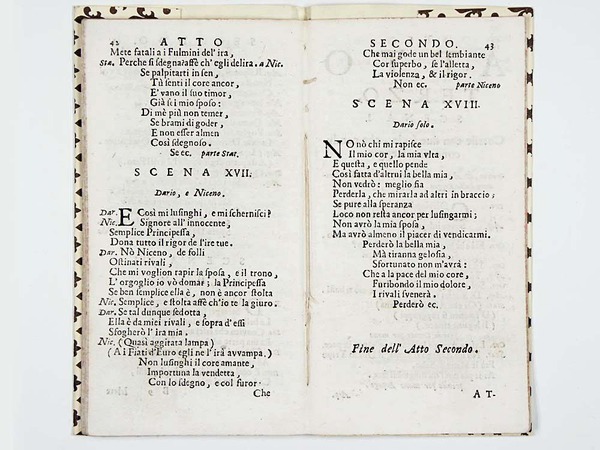 42 ATTO
Mete fatali a i Fulmini del' ira,
Sta. Perche si sdegna? affè ch'egli delira. a Nic.
Se palpitarti in sen,
Tù senti il core ancor,
E' vano il suo timor,
Già sei mio sposo:
Di mè più non temer,
Se brami di goder,
E non esser almen
Così sdegnoso.
Se ec. parte Stat.
SCENA XVII.
Dario, e Niceno.
Dar. E Così mi lusinghi, e mi schernisci?
Nic. Signore all' innocente,
Semplice Principessa,
Dona tutto il rigor de l'ire tue.
Dar. Nò Niceno, de folli
Ostinati rivali,
Che mi voglion rapir la sposa, e il trono,
L' orgoglio io vò domar; la Principessa
Se ben semplice ella è, non è ancor stolta
Nic. Semplice, e stolta affè ch'io te la giuro.
Dar. Se tal dunque sedotta,
Ella è da miei rivali, e sopra d'essi
Sfogherò l' ira mia.
Nic. (Quasi aggitata lampa)
(A i Fiati d'Euro egli ne l'irà avvampa.)
Non lusinghi il core amante,
Importuna la vendetta,
Con lo sdegno, e col furor
Che
SECONDO. 43
Che mai gode un bel sembiante
Cor superbo, se l'alletta,
La violenza, & il rigor.
Non ec. parte Niceno
SCENA XVIII.
Dario solo.
NO nò chi mi rapisce
Il mio cor, la mia vita,
E questa, e quello pende
Così fatta d'altrui la bella mia,
Non vedrò: meglio fia
Perderla, che mirarla ad altri in braccio;
Se pure alla speranza
Loco non resta ancor per lusingarmi;
Non avrò la mia sposa,
Ma avrò almeno il piacer di vendicarmi.
Perderò la bella mia,
Mà tiranna gelosia,
Sfortunato non m'avrà:
Che a la pace del mio core,
Furibondo il mio dolore,
I rivali svenerà.
Perderò ec.
Fine dell' Atto Secondo.
AT-